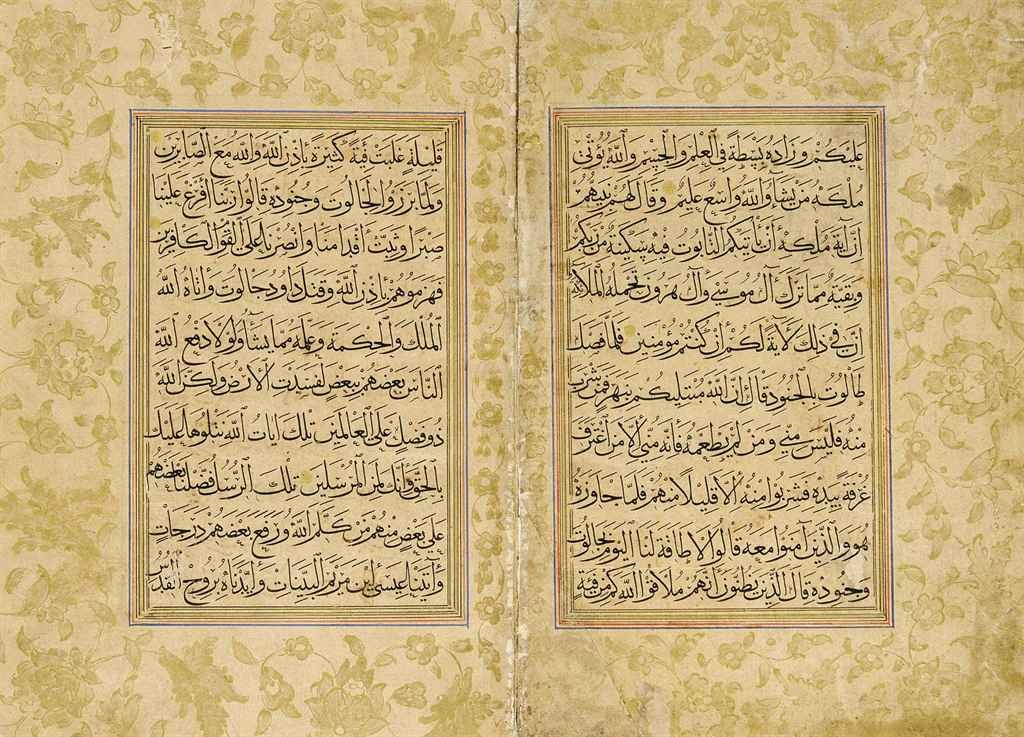 عليكم وزاده بسطة في العلم والجسم والله يؤتي
ملكه من يشاء والله واسع عليم وقال لهم نبيهم
ان آية ملكه أن يأتيكم التابوت فيه سكينة من ربكم
وبقية مما ترك آل موسى وآل هرون تحمله الملائكة
إن في ذلك لآية لكم إن كنتم مؤمنين فلما فصل
طالوت بالجنود قال ان الله مبتليكم بنهر فمن شرب
منه فليس مني ومن لم يطعمه فانه مني إلا من اغترف
غرفة بيده فشربوا منه الا قليلا منهم فلما جاوزه
هو والذين آمنوا معه قالوا لا طاقة لنا اليوم بجالوت
وجنوده قال الذين يظنون أنهم ملاقوا الله كم من فئة
قليلة غلبت فئة كثيرة باذن الله والله مع الصابرين
ولما برزوا لجالوت وجنوده قالوا ربنا أفرغ علينا
صبرا وثبت أقدامنا وانصرنا على القوم الكافرين
فهزموهم باذن الله وقتل داود جالوت وآتاه الله
الملك والحكمة وعلمه مما يشاء ولولا دفع الله
الناس بعضهم ببعض لفسدت الأرض ولكن الله
ذو فضل على العالمين تلك ايات الله نتلوها عليك
بالحق وإنك لمن المرسلين تلك الرسل فضلنا بعضهم
على بعض منهم من كلم الله ورفع بعضهم درجات
وآتينا عيسى ابن مريم البينات وأيدناه بروح القدس